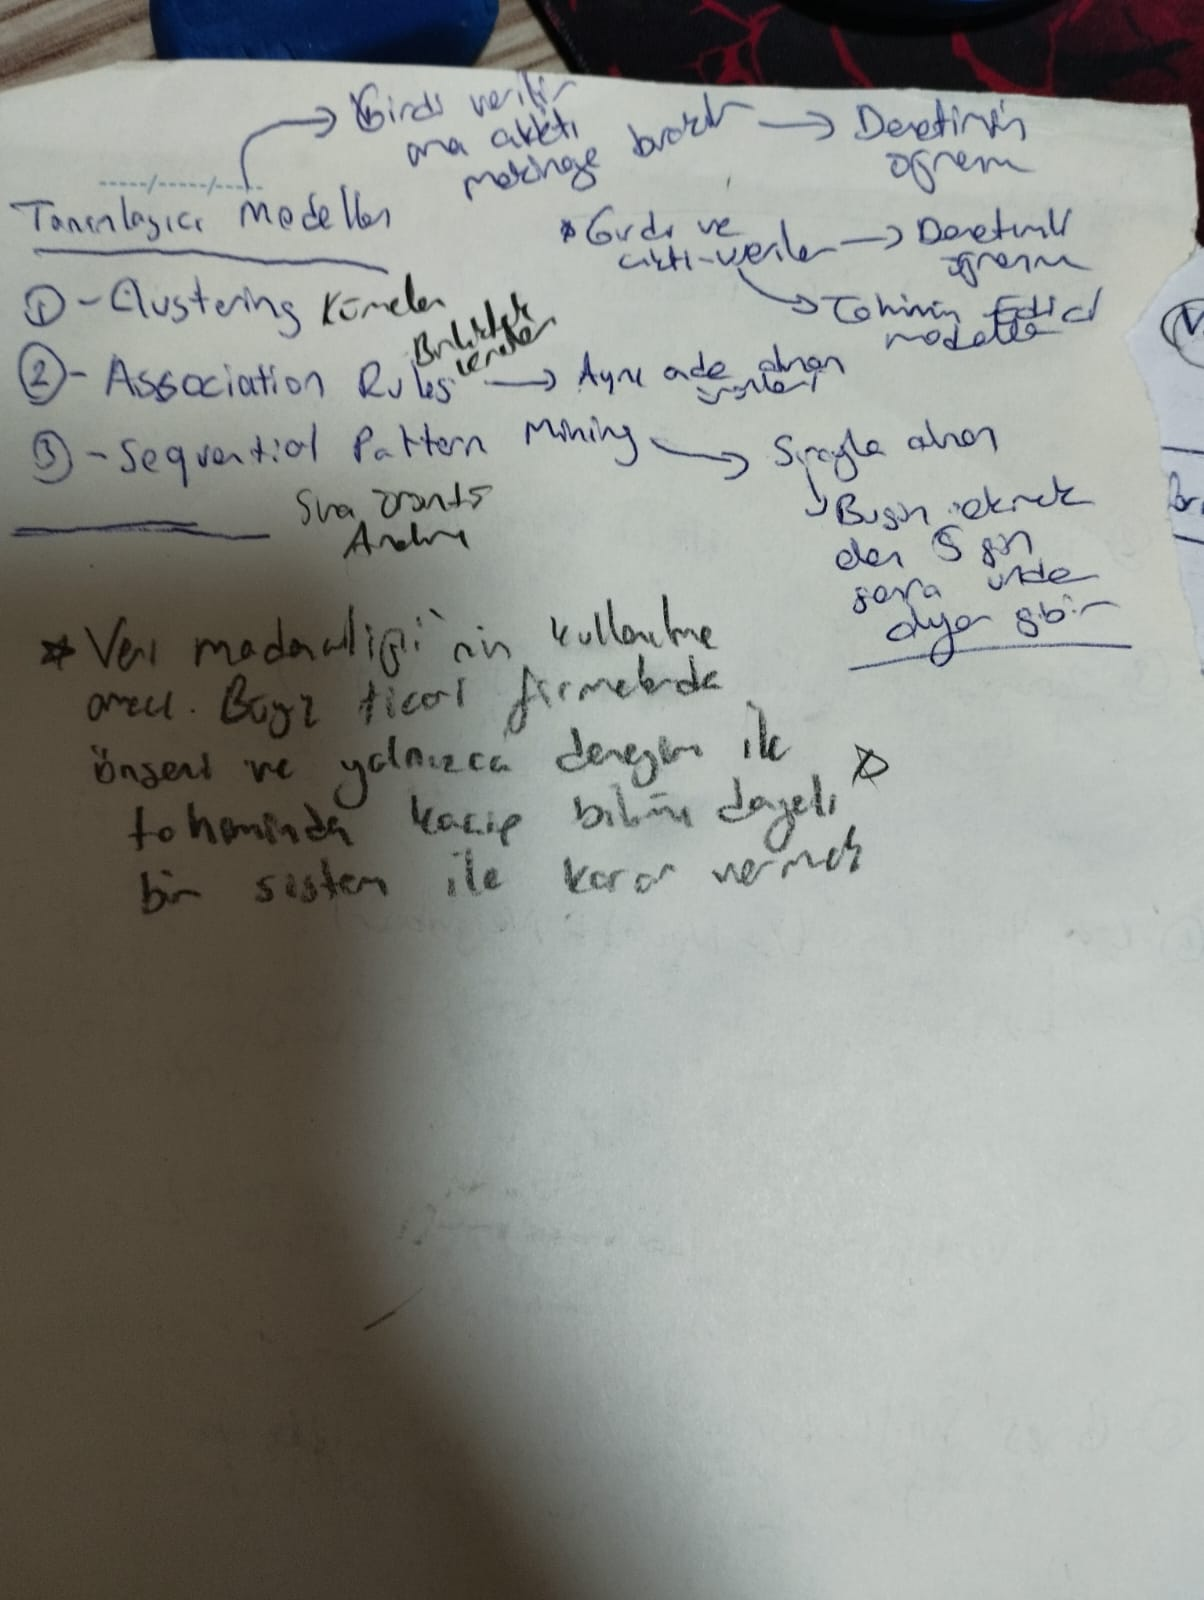 Girdi verilir
ama
makineye
Denetimsiz
öğrenm
Tanımlayıcı Modeller
* Girdi ve
çıktı veriler → Denetimli
öğrenm
Tahmin Edici
modeller
① - Clustering Kümeler
② - Association Rules → Aynı anda alınan
ürünleri
③ - Sequential Pattern Mining → Sırayla alınan
Sıra
Bugün ekmek
alan 5 gün
sonra
gibi
* Veri madenciliği'nin kullanılma
amacı. Büyük ticari firmalarda
önsezi ve yalnızca deneyim ile
kaçıp bilime dayalı
bir sistem ile karar vermek